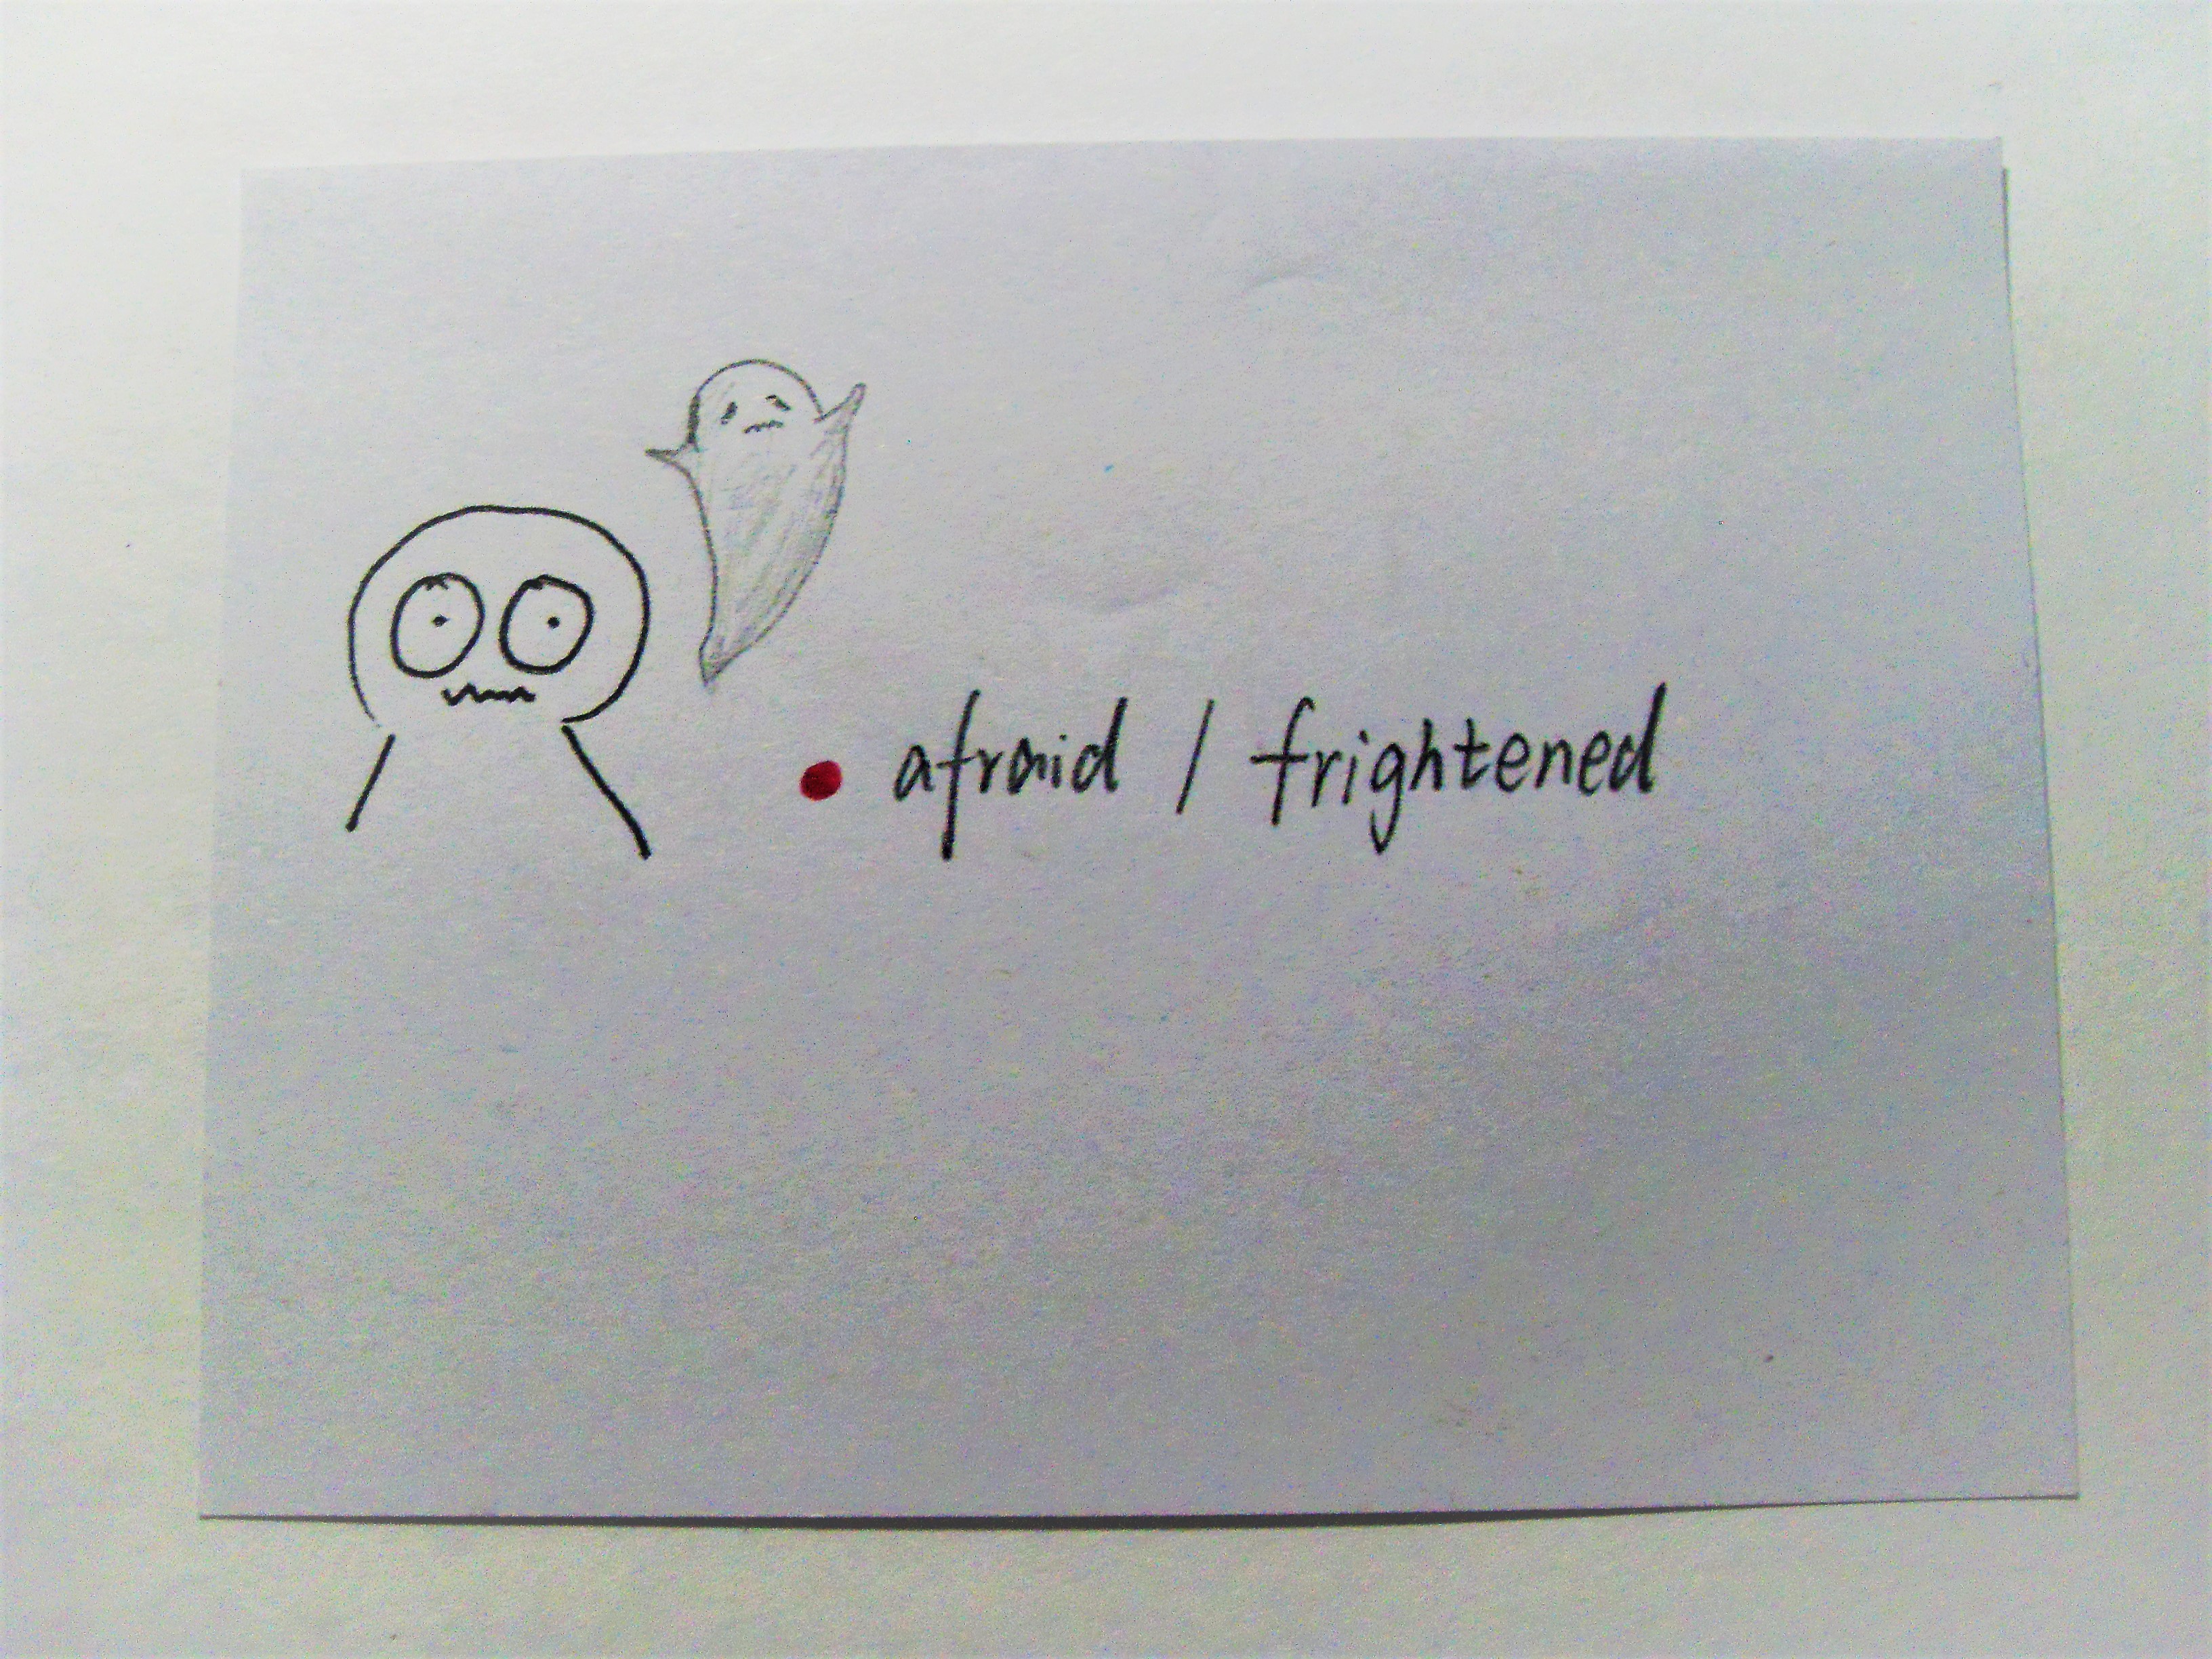 afraid / frightened